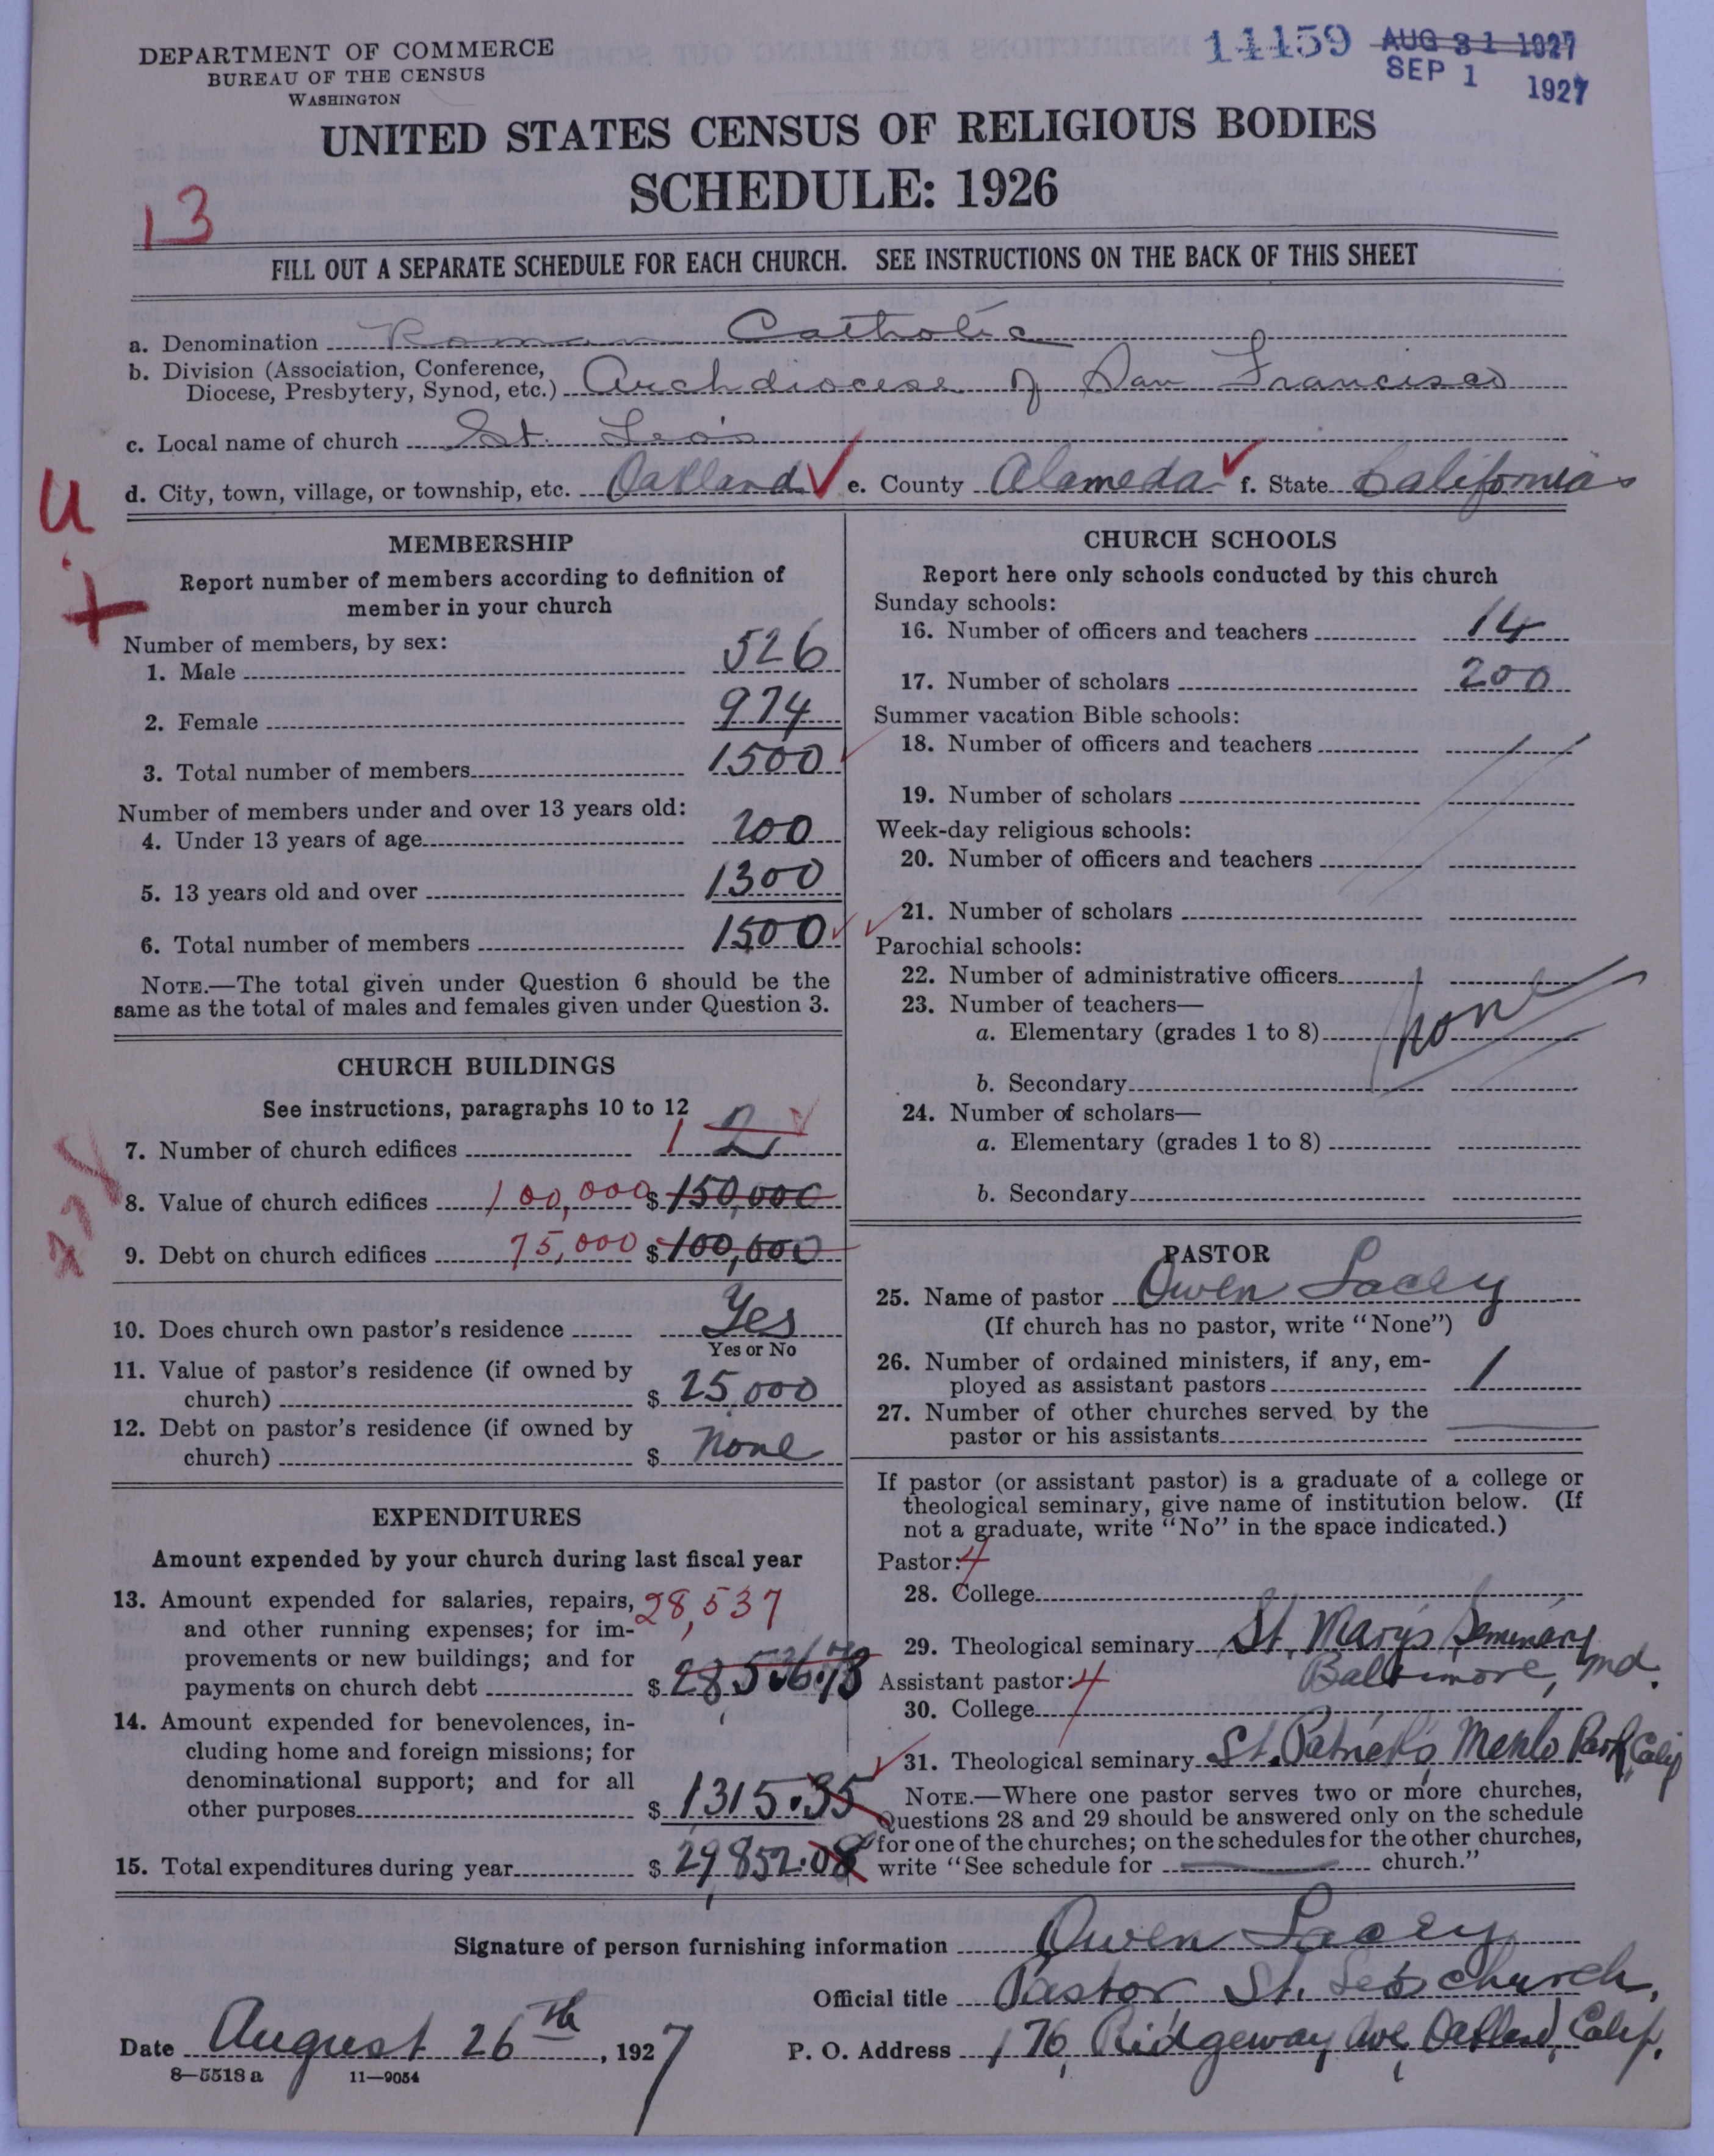 DEPARTMENT OF COMMERCE
BUREAU OF THE CENSUS
WASHINGTON
14159 AUG 31 1927
SEP 1 1927
UNITED STATES CENSUS OF RELIGIOUS BODIES
SCHEDULE: 1926
13
FILL OUT A SEPARATE SCHEDULE FOR EACH CHURCH. SEE INSTRUCTIONS ON THE BACK OF THIS SHEET
a. Denomination Roman Catholic
b. Division (Association, Conference,
Diocese, Presbytery, Synod, etc.) Archdiocese of San Francisco
c. Local name of church St. Leo's
d. City, town, village, or township, etc. Oakland e. County Alameda f. State California
U
MEMBERSHIP
Report number of members according to definition of
member in your church
Number of members, by sex:
1. Male 526
2. Female 974
3. Total number of members 1500
Number of members under and over 13 years old:
4. Under 13 years of age 200
5. 13 years old and over 1300
6. Total number of members 1500
NOTE.—The total given under Question 6 should be the
same as the total of males and females given under Question 3.
CHURCH BUILDINGS
See instructions, paragraphs 10 to 12
7. Number of church edifices 1 2
8. Value of church edifices 100,000 $ 150,000
9. Debt on church edifices 75,000 $ 100,000
10. Does church own pastor's residence Yes
Yes or No
11. Value of pastor's residence (if owned by
church) $ 25,000
12. Debt on pastor's residence (if owned by
church) $ None
EXPENDITURES
Amount expended by your church during last fiscal year
13. Amount expended for salaries, repairs, 28,537
and other running expenses; for im-
provements or new buildings; and for
payments on church debt $ 28536.73
14. Amount expended for benevolences, in-
cluding home and foreign missions; for
denominational support; and for all
other purposes $ 1315.35
15. Total expenditures during year $ 29,852.08
CHURCH SCHOOLS
Report here only schools conducted by this church
Sunday schools:
16. Number of officers and teachers 14
17. Number of scholars 200
Summer vacation Bible schools:
18. Number of officers and teachers
19. Number of scholars
Week-day religious schools:
20. Number of officers and teachers
21. Number of scholars
Parochial schools:
22. Number of administrative officers
23. Number of teachers—
a. Elementary (grades 1 to 8) none
b. Secondary
24. Number of scholars—
a. Elementary (grades 1 to 8)
b. Secondary
PASTOR
25. Name of pastor Owen Lacey
(If church has no pastor, write "None")
26. Number of ordained ministers, if any, em-
ployed as assistant pastors 1
27. Number of other churches served by the
pastor or his assistants
If pastor (or assistant pastor) is a graduate of a college or
theological seminary, give name of institution below. (If
not a graduate, write "No" in the space indicated.)
Pastor: 4
28. College
29. Theological seminary St. Mary's Seminary
Baltimore, Md.
Assistant pastor: 4
30. College
31. Theological seminary St. Patrick's, Menlo Park, Calif
NOTE.—Where one pastor serves two or more churches,
Questions 28 and 29 should be answered only on the schedule
for one of the churches; on the schedules for the other churches,
write "See schedule for church."
Signature of person furnishing information Owen Lacey
Official title Pastor, St. Leo's Church,
Date August 26th, 1927 P. O. Address 176, Ridgeway Ave, Oakland, Calif.
8—5518 a 11—9054